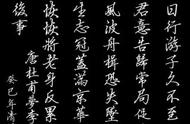 日行游子久不至
君意告歸常局促
風波舟楫恐失墜
生志冠蓋滿京華
恢恢將老身反累
後事
唐杜甫夢李
癸巳年清